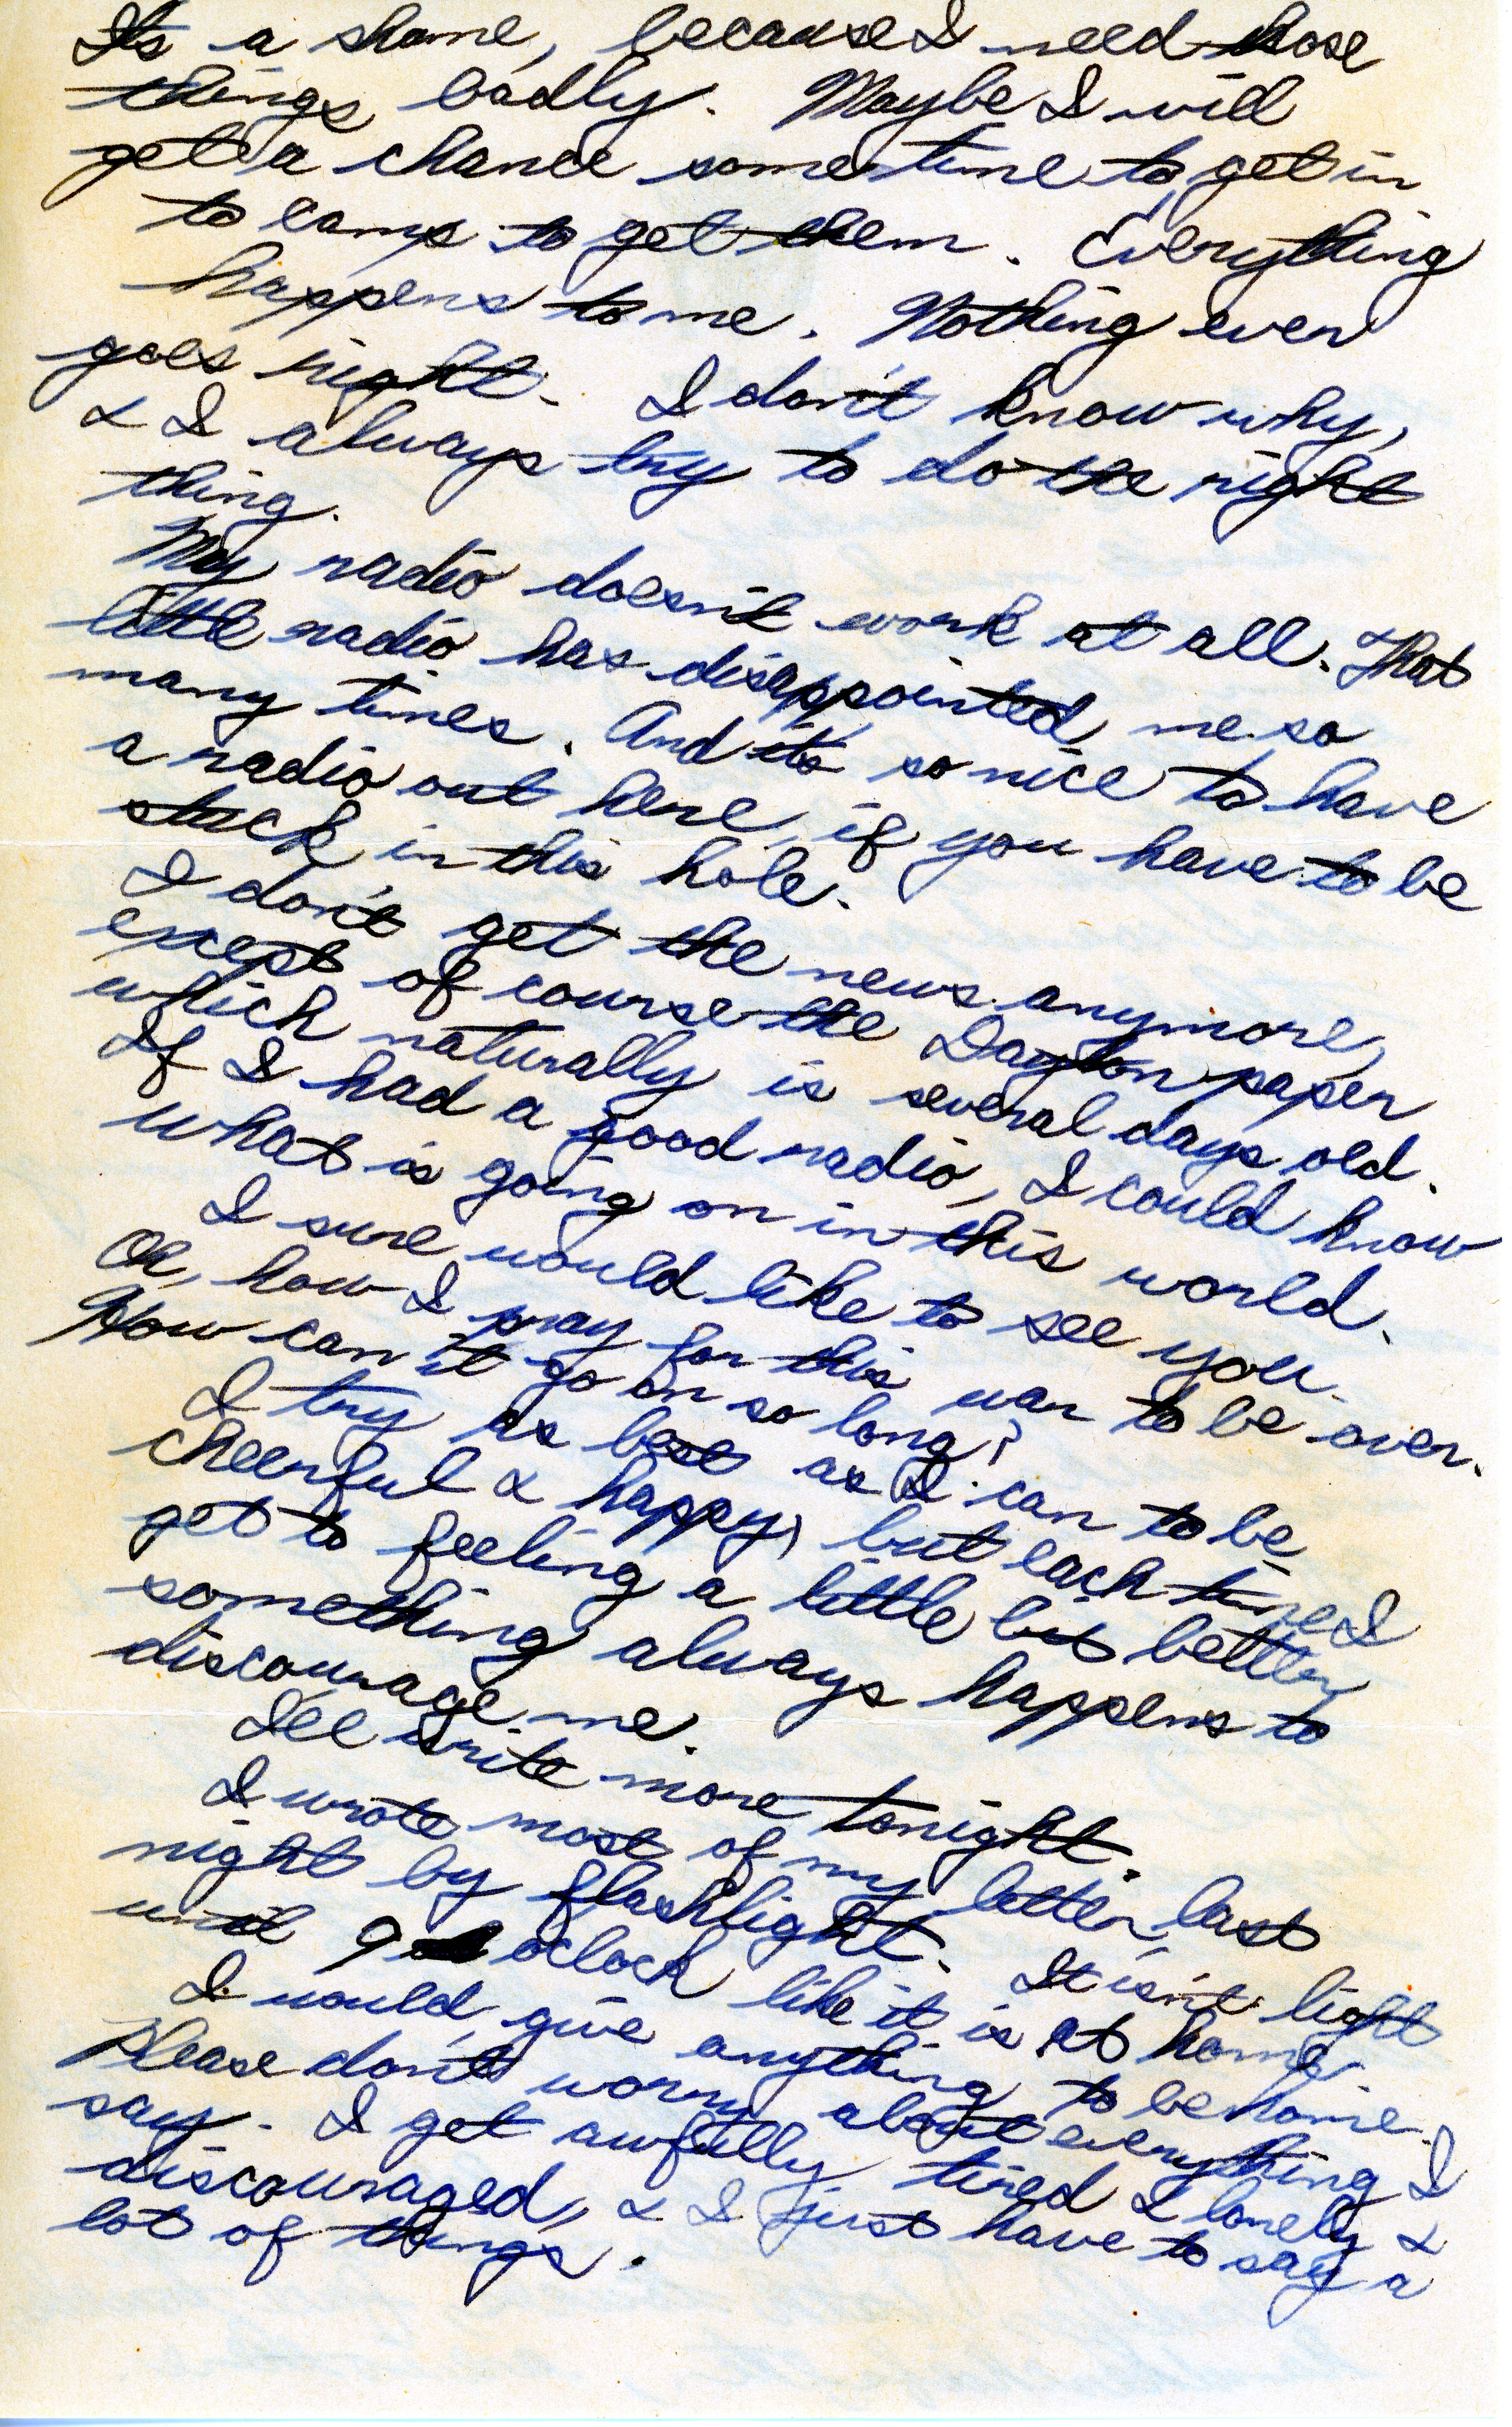 Its a shame, because I need those
things badly. Maybe I will
get a chance sometime to get in
to camp to get them. Everything
happens to me. Nothing ever
goes right. I don't know why,
& I always try to do the right
thing.
My radio doesn't work at all. That
little radio has disappointed me so
many times. And its so nice to have
a radio out here, if you have to be
stuck in this hole.
I don't get the news anymore,
except of course the Dayton paper
which naturally is several days old.
If I had a good radio, I could know
what is going on in this world.
I sure would like to see you.
Oh, how I pray for this war to be over.
How can it go on so long?
I try as best as I can to be
cheerful & happy, but each time I
get to feeling a little bit better,
something always happens to
discourage me.
I'll write more tonight.
I wrote most of my letter last
night by flashlight. It isn't light
until 9 o'clock like it is at home.
I would give anything to be home.
Please don't worry about everything I
say. I get awfully tired & lonely &
discouraged, & I just have to say a
lot of things.